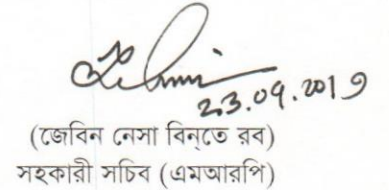 23.09.2019
(জেবিন নেসা বিন্তে রব)
সহকারী সচিব (এমআরপি)